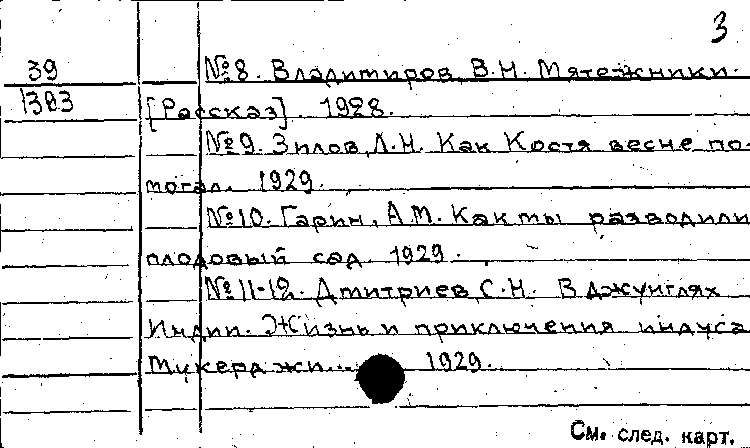 3
39 №8. Владимиров, В.Н. Мятежники.
1303 [Рассказ]. 1928.
№9. Зилов, Л.Н. Как Костя весне по-
могал. 1929.
№10. Гарин, А.М. Как мы разводили
плодовый сад. 1929.
№11-12. Дмитриев, С.Н. В джунглях
Индии. Жизнь и приключения индуса
Мукерджи... 1929.
См. след. карт.